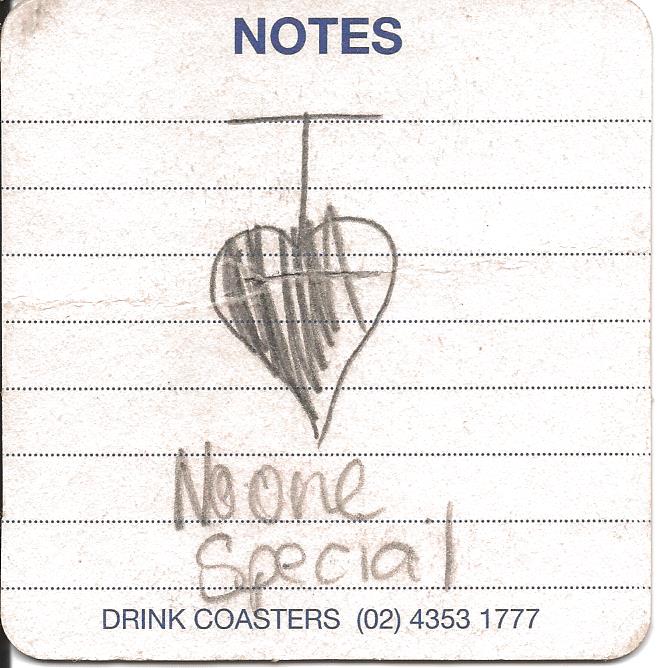 NOTES
I
No one
Special
DRINK COASTERS (02) 4353 1777